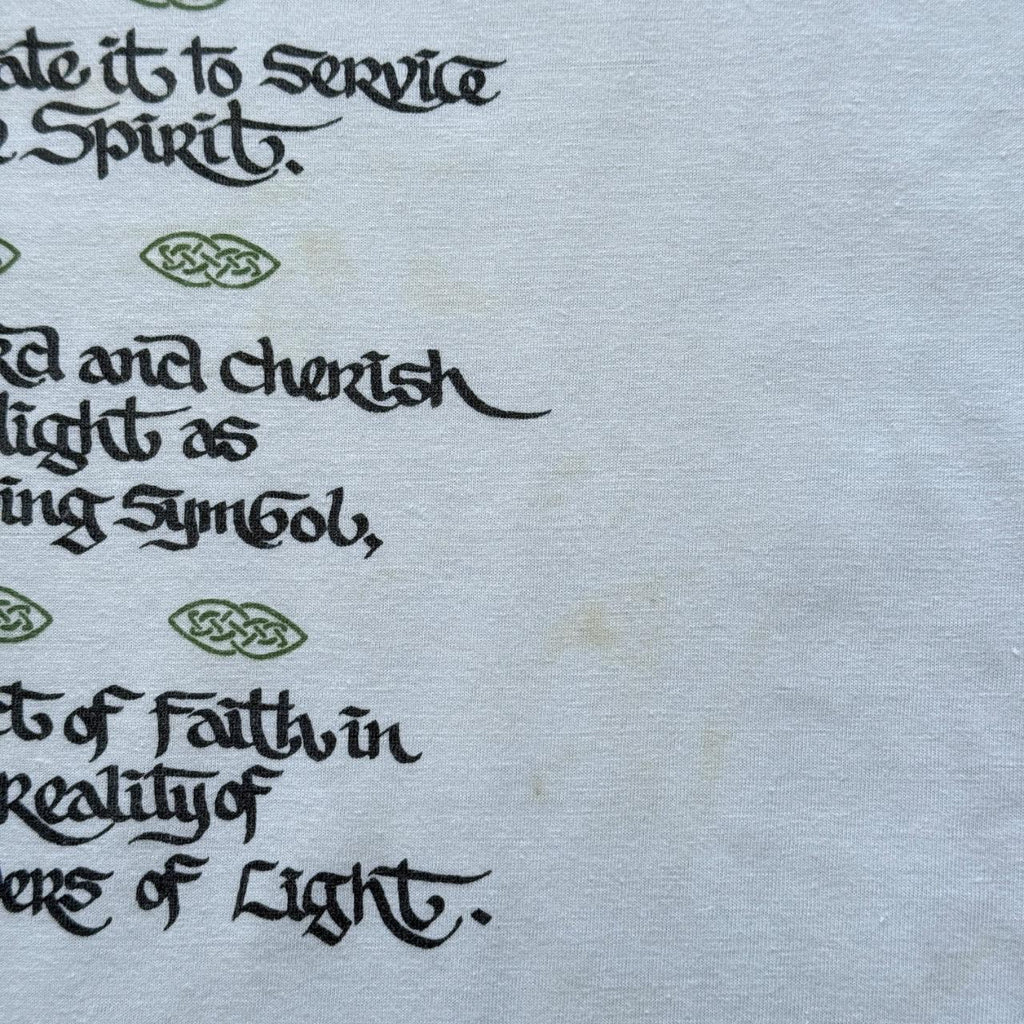 ate it to Service
Spirit.
and cherish
light as
ing Symbol,
of Faith in
Reality of
ers of Light.